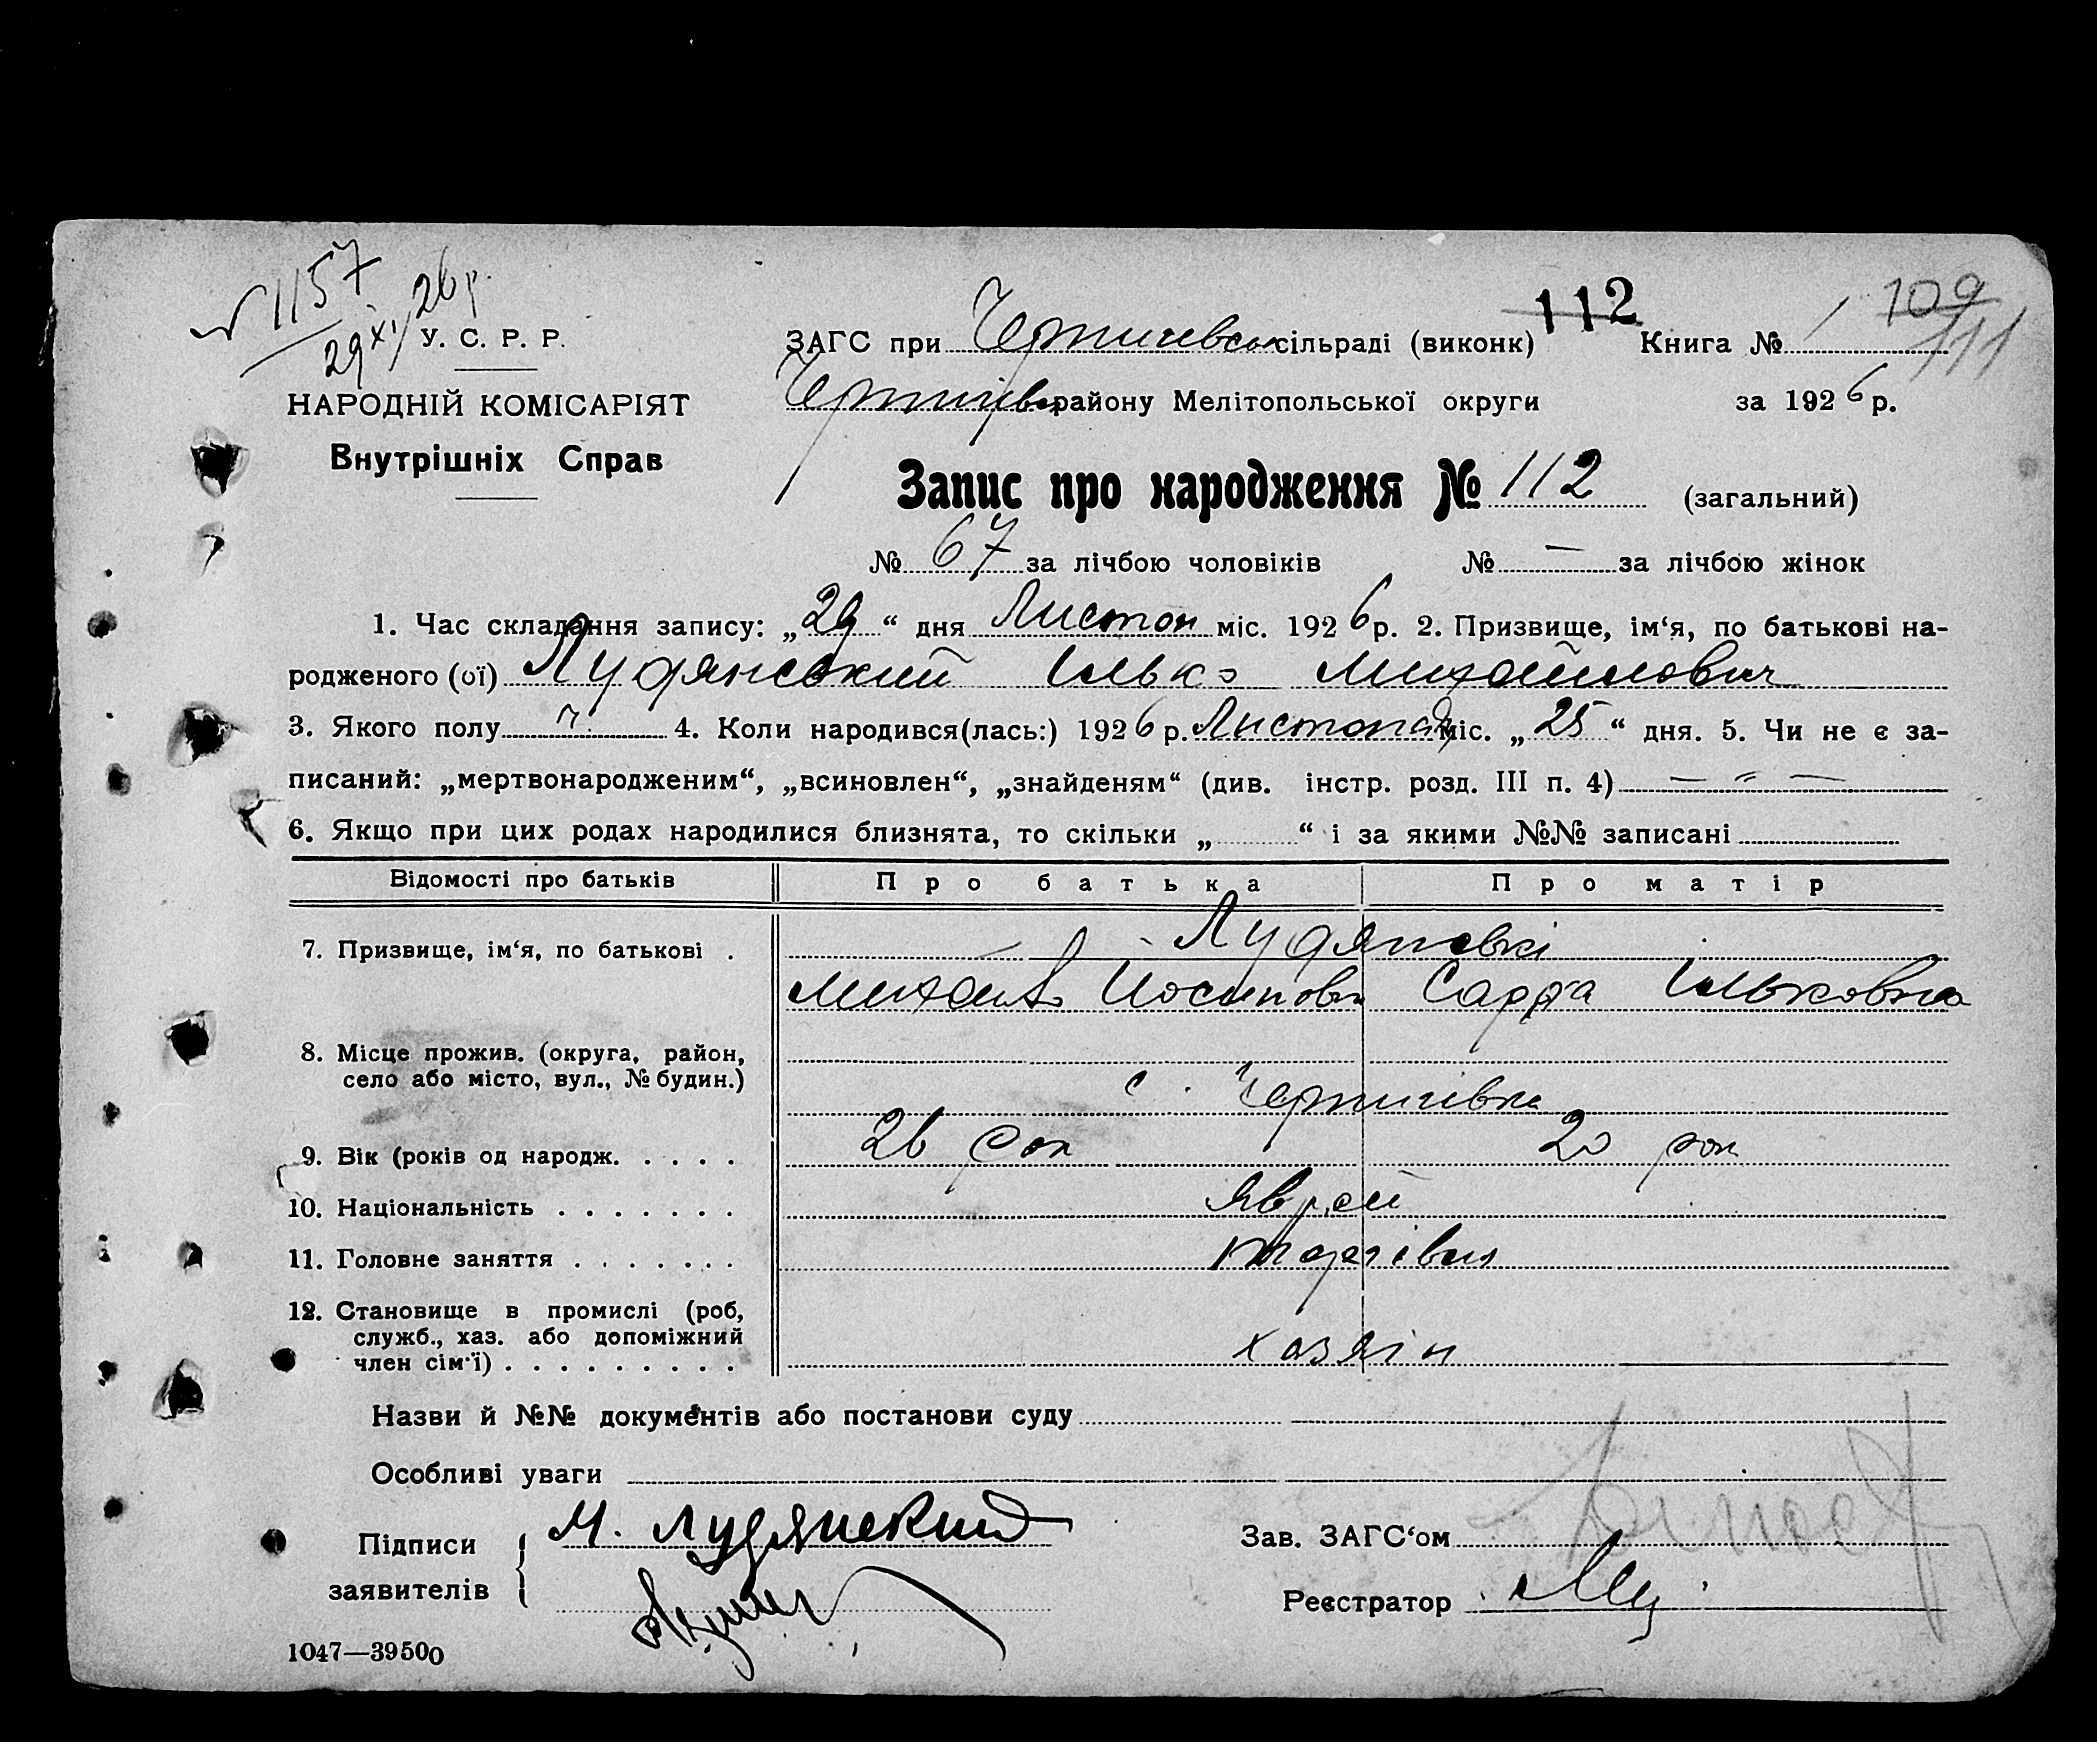 № 1157
29 XI 26 р.
У. С. Р. Р.
НАРОДНІЙ КОМІСАРІЯТ
Внутрішніх Справ
112
109
111
ЗАГС при Чернигевськ сільраді (виконк) Книга № 1
району Мелітопольської округи за 1926 р.
Запис про народження № 112 (загальний)
№ 67 за лічбою чоловіків № — за лічбою жінок
1. Час складання запису: „29“ дня Листоп міс. 1926 р. 2. Призвище, ім‘я, по батькові на-
родженого (ої) Лудянський Илько Михайлович
3. Якого полу ч. 4. Коли народився(лась:) 1926 р. Листопад міс. „25“ дня. 5. Чи не є за-
писаний: „мертвонародженим“, „всиновлен“, „знайденям“ (див. інстр. розд. III п. 4) — „ —
6. Якщо при цих родах народилися близнята, то скільки „ “ і за якими №№ записані
Відомості про батьків Про батька Про матір
7. Призвище, ім‘я, по батькові . Лудянські
Михайло Иосипов Сарра Ильковна
8. Місце прожив. (округа, район,
село або місто, вул., № будин.) с. Чернигівка
9. Вік (років од народж. . . . . 26 рок 20 рок
10. Національність . . . . . . . Яврей
11. Головне заняття . . . . . . . торгівля
12. Становище в промислі (роб,
служб., хаз. або допоміжний
член сім‘ї) . . . . . . . . . хазяін
Назви й №№ документів або постанови суду
Особливі уваги
Підписи
заявителів
М. Лудянский
Зав. ЗАГС‘ом
Реєстратор
1047—39500